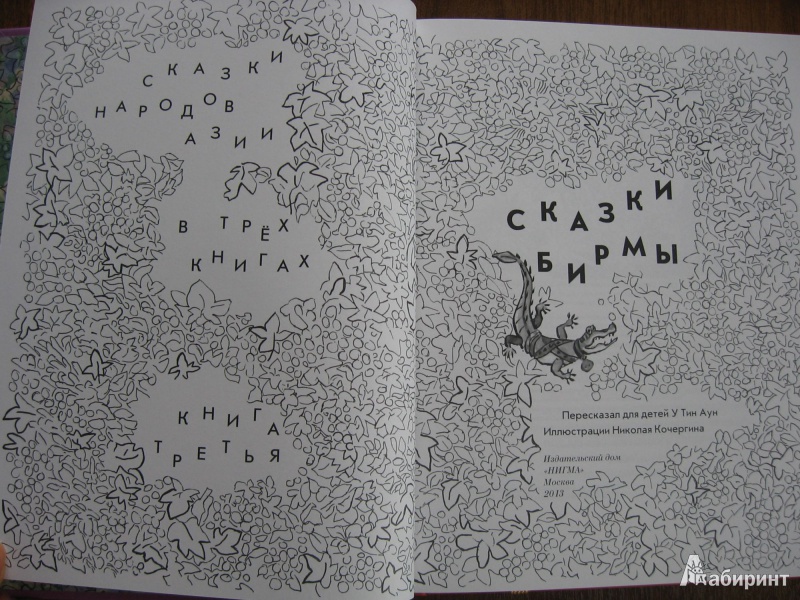 СКАЗКИ
НАРОДОВ
АЗИИ
В ТРЁХ
КНИГАХ
КНИГА
ТРЕТЬЯ
СКАЗКИ
БИРМЫ
Пересказал для детей У Тин Аун
Иллюстрации Николая Кочергина
Издательский дом
«НИГМА»
Москва
2013
Лабиринт